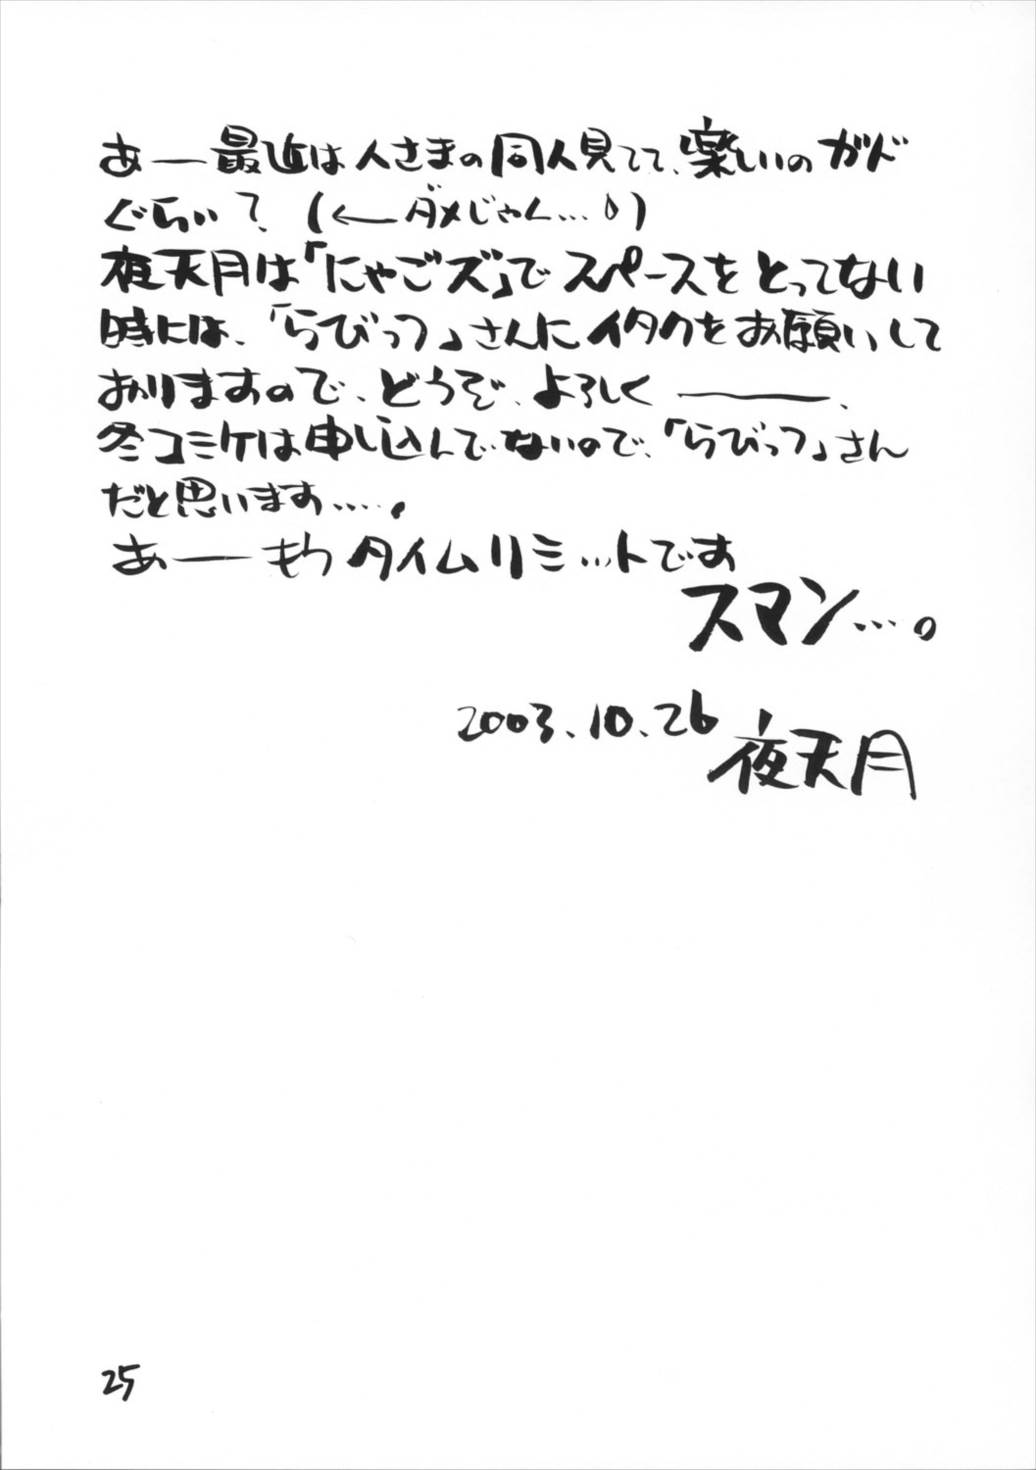 あー最近は人さまの同人見てて、楽しいのガド
ぐらい？(←ダメじゃん…)
夜天月は「にゃごズ」でスペースをとってない
時には、「らびっつ」さんにイタクをお願いして
おりますので、どうぞ、よろしくーー、
冬コミケは申し込んでないので、「らびっつ」さん
だと思います…。
あーーもうタイムリミットです
スマン…。
2003.10.26 夜天月
25